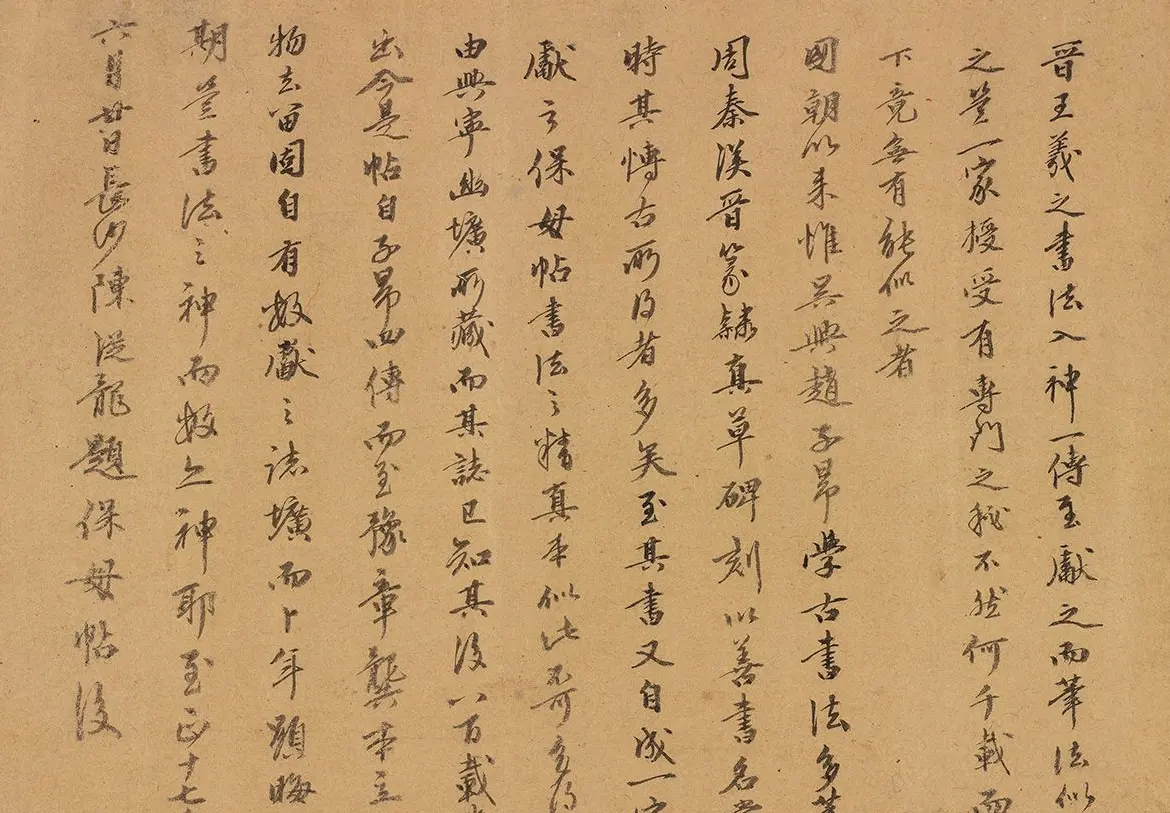 晉王羲之書法入神一傳至獻之而筆法似
之豈一家授受有專門之秘不然何千載而
下竟無有能似之者
國朝以来惟吳興趙子昂學古書法多
周秦漢晉篆隸真草碑刻以善書名
時其博古所得者多矣至其書又自成一
獻之保母帖書法之精真本似此不可多得
由興寧幽壙所藏而其誌已知其後八百載
出今是帖自子昂四傳而至豫章龔本立
物去留固自有數獻之誌壙而卜年顯晦
期豈書法之神而數亦神耶至正十七
六月廿日長沙陳從龍題保母帖後